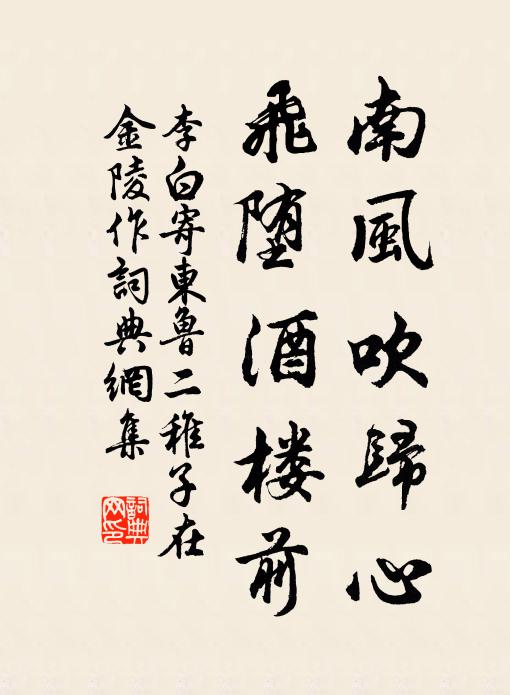 南風吹歸心
飛堕酒楼前
李白寄東魯二稚子在
金陵作詞典網集
詞典
网印